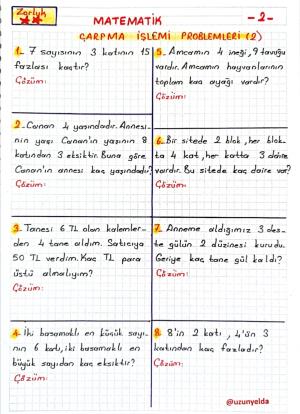 Zorluk
MATEMATİK
-2-
ÇARPMA İŞLEMİ PROBLEMLERİ (2)
1- 7 sayısının 3 katının 15
fazlası kaçtır?
Çözüm:
2- Canan 4 yaşındadır. Annesi-
nin yaşı Canan'ın yaşının 8
katından 3 eksiktir. Buna göre
Canan'ın annesi kaç yaşındadır?
Çözüm:
3- Tanesi 6 TL olan kalemler-
den 4 tane aldım. Satıcıya
50 TL verdim. Kaç TL para
üstü almalıyım?
Çözüm:
4- İki basamaklı en küçük sayı-
nın 6 katı, iki basamaklı en
büyük sayıdan kaç eksiktir?
Çözüm:
5- Amcamın 4 ineği, 9 tavuğu
vardır. Amcamın hayvanlarının
toplam kaç ayağı vardır?
Çözüm:
6- Bir sitede 2 blok, her blok-
ta 4 kat, her katta 3 daire
vardır. Bu sitede kaç daire var?
Çözüm:
7- Anneme aldığımız 3 des-
te gülün 2 düzinesi kurudu.
Geriye kaç tane gül kaldı?
Çözüm:
8- 8'in 2 katı, 4'ün 3
katından kaç fazladır?
Çözüm:
@uzunyelda